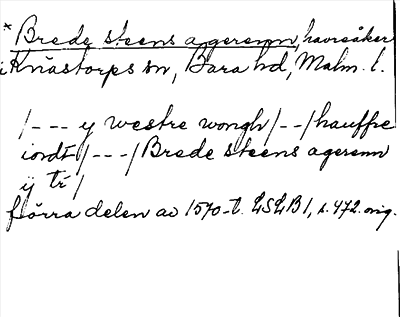 * Brede steens agerenn, havreåker
i Knästorps sn, Bara hd, Malm. l.
/--- y westre wongh/--/hauffre
iordt/---/Brede steens agerenn
ÿ tÿ/
förra delen av 1570-t. LSLB1, s. 472. orig.